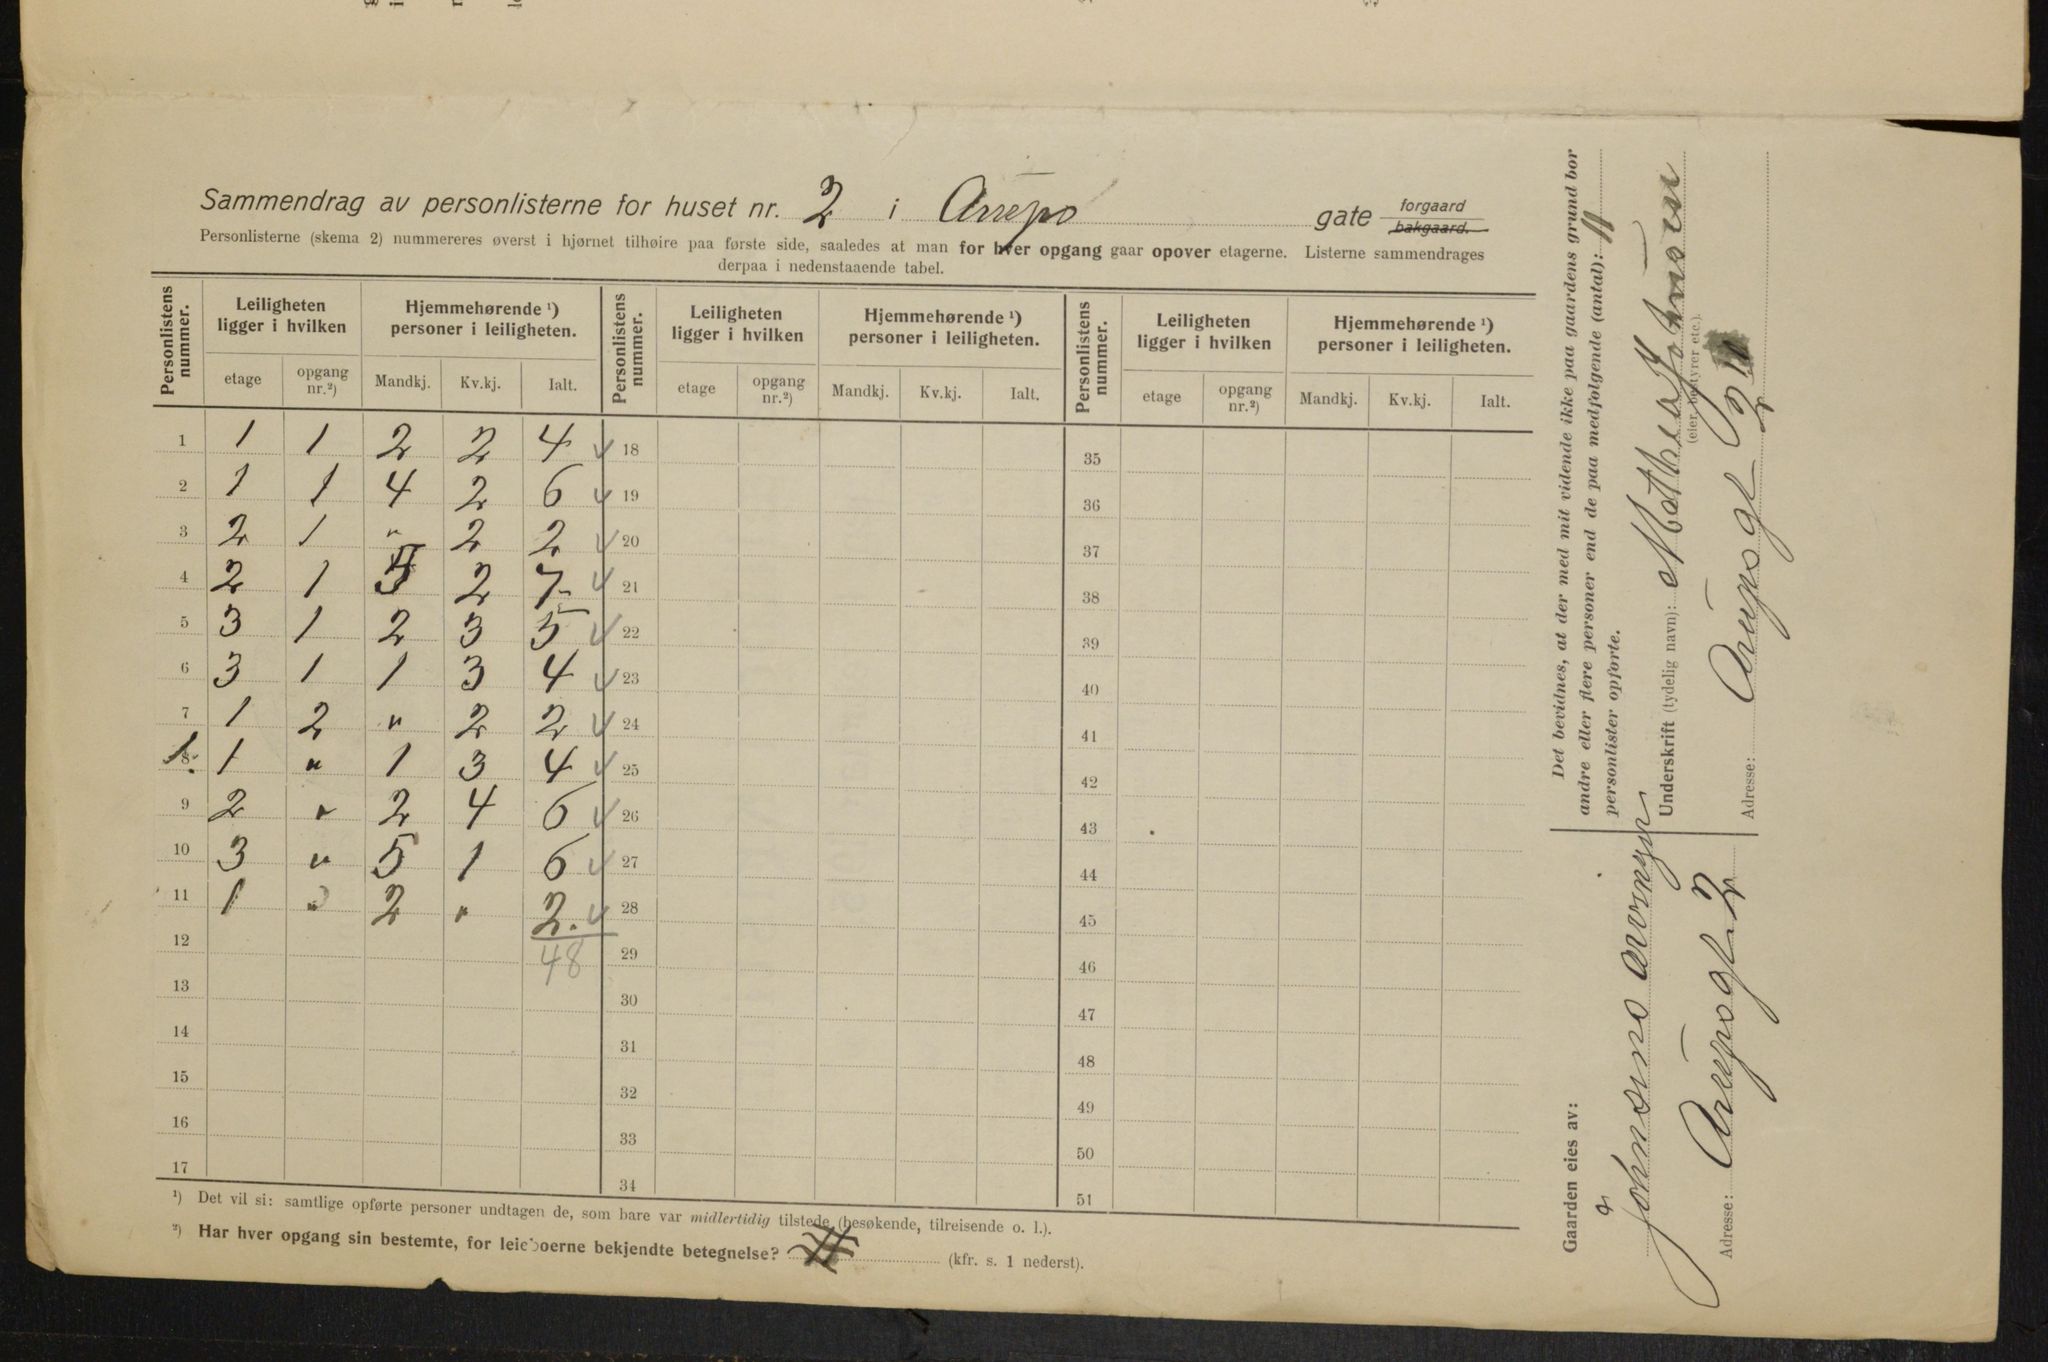 Sammendrag av personlisterne for huset nr. 2 i Arrepo gate forgaard
bakgaard.
Personlisterne (skema 2) nummereres øverst i hjørnet tilhøire paa første side, saaledes at man for hver opgang gaar opover etagerne. Listerne sammendrages
derpaa i nedenstaaende tabel.
Personlistens nummer. Leiligheten ligger i hvilken Hjemmehørende ¹) personer i leiligheten. Personlistens nummer. Leiligheten ligger i hvilken Hjemmehørende ¹) personer i leiligheten. Personlistens nummer. Leiligheten ligger i hvilken Hjemmehørende ¹) personer i leiligheten.
etage opgang nr.²) Mandkj. Kv.kj. Ialt. etage opgang nr.²) Mandkj. Kv.kj. Ialt. etage opgang nr.²) Mandkj. Kv.kj. Ialt.
1 1 1 2 2 4 18 35
2 1 1 4 2 6 19 36
3 2 1 " 2 2 20 37
4 2 1 5 2 7 21 38
5 3 1 2 3 5 22 39
6 3 1 1 3 4 23 40
7 1 2 " 2 2 24 41
8 1 " 1 3 4 25 42
9 2 " 2 4 6 26 43
10 3 " 5 1 6 27 44
11 1 " 2 " 2. 28 45
12 48 29 46
13 30 47
14 31 48
15 32 49
16 33 50
17 34 51
¹) Det vil si: samtlige opførte personer undtagen de, som bare var midlertidig tilstede (besøkende, tilreisende o. l.).
²) Har hver opgang sin bestemte, for leieboerne bekjendte betegnelse? (kfr. s. 1 nederst).
Det bevidnes, at der med mit vidende ikke paa gaardens grund bor
andre eller flere personer end de paa medfølgende (antal): 11
personlister opførte.
Underskrift (tydelig navn): Mathea Johnsen
(eier, bestyrer etc.).
Adresse: Arupsgt 2
Gaarden eies av:
Johnsens arvinger
Adresse: Arupsgt 2